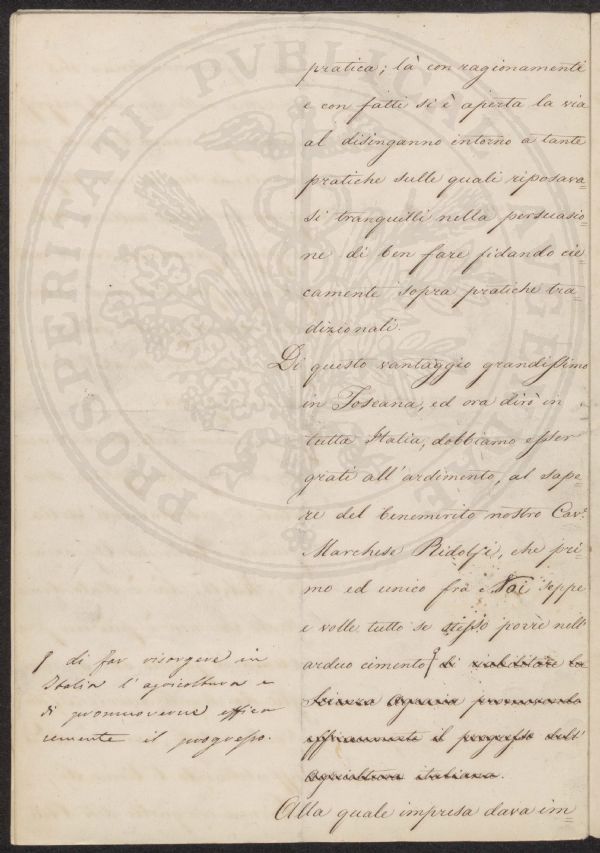 PROSPERITATI PVBLICAE AVGENDAE
pratica; là con ragionamenti
e con fatti si è aperta la via
al disinganno intorno a tante
pratiche sulle quali riposava=
si tranquilli nella persuasio=
ne di ben fare fidando cie=
camente sopra pratiche tra=
dizionali.
Di questo vantaggio grandissimo
in Toscana, ed ora dirò in
tutta Italia, dobbiamo esser
grati all'ardimento, al sape=
re del benemerito nostro Cav.e
Marchese Ridolfi, che pri=
mo ed unico fra Noi seppe
e volle tutto se stesso porre nell'
arduo cimento di riabilitare la
Scienza agraria promuovendo
efficacemente il progresso dell'
agricoltura italiana.
di far risorgere in
Italia l'agricoltura e
di promuoverne effica
cemente il progresso.
Alla quale impresa dava im=